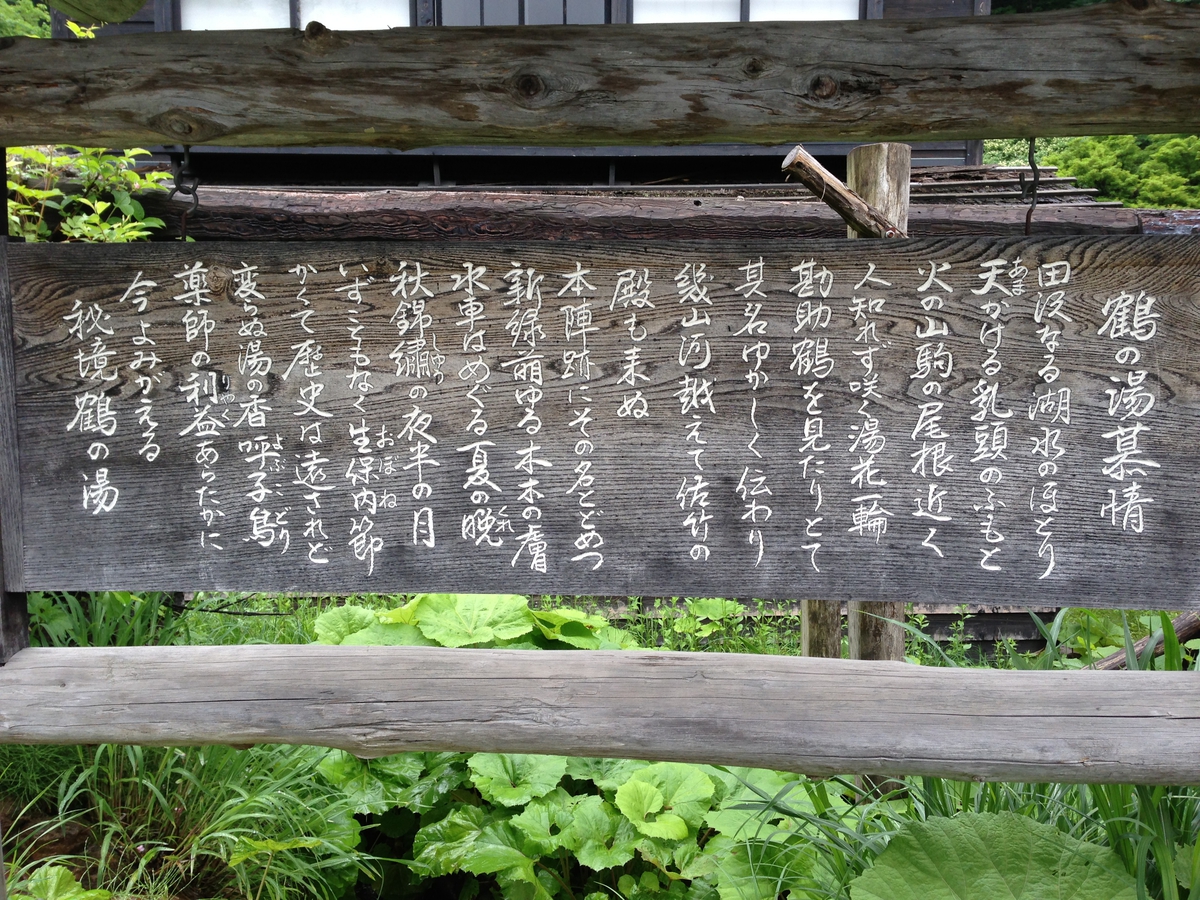 鶴の湯慕情
田沢なる湖水のほとり
天かける乳頭のふもと
火の山駒の尾根近く
人知れず咲く湯花一輪
勘助鶴を見たりとて
其名ゆかしく伝わり
幾山河越えて佐竹の
殿も来ぬ
本陣跡にその名とどめつ
新緑萌ゆる木木の膚
水車はめぐる夏の晩
秋錦繍の夜半の月
いずこともなく生保内節
かくて歴史は遠されど
変らぬ湯の香呼子鳥
薬師の利益あらたかに
今よみがえる
秘境鶴の湯
あま
くれ
しゅう
おぼね
よぶこどり
りやく